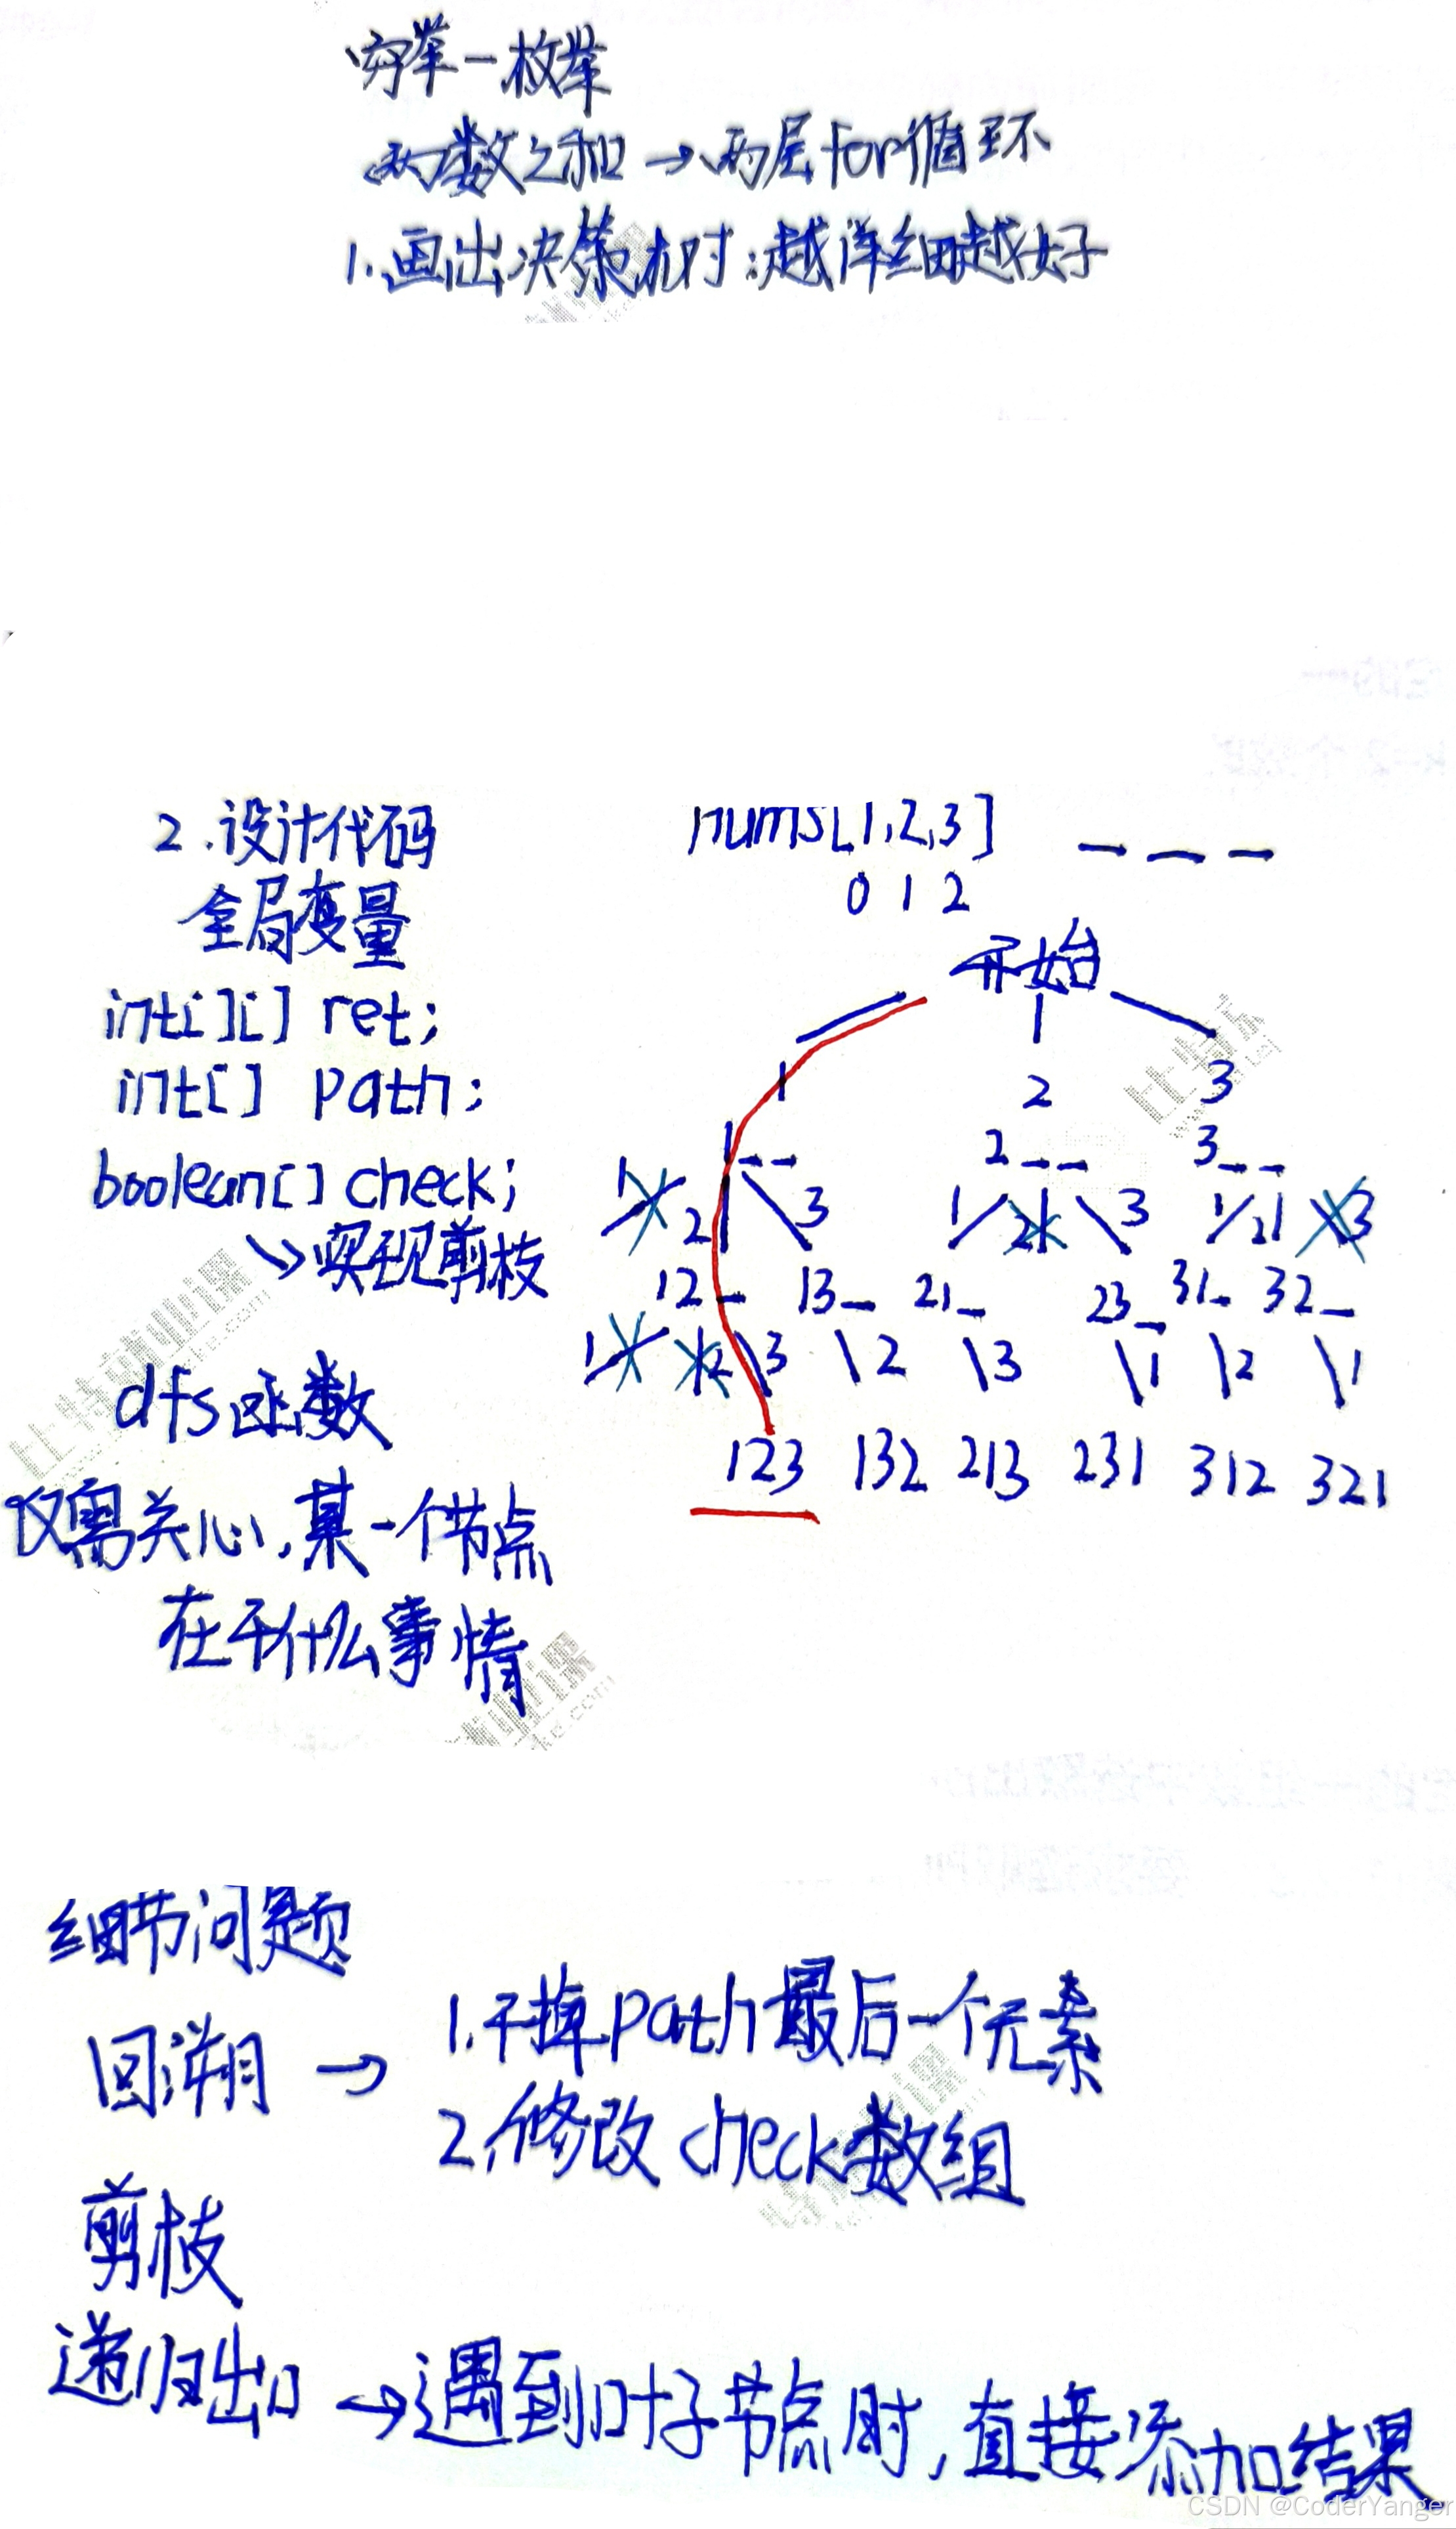 穷举—枚举
两数之和→两层for循环
1.画出决策树:越详细越好
2.设计代码
全局变量
int[][] ret;
int[] path;
boolean[] check;
↘实现剪枝
dfs函数
仅需关心,某一个节点
在干什么事情
nums[1,2,3] _ _ _
0 1 2
开始
1 2 3
1_ _ 2_ _ 3_ _
1 2 3 1 2 3 1 2 3
12_ 13_ 21_ 23_ 31_ 32_
1 2 3 2 3 1 2 1
123 132 213 231 312 321
细节问题
回溯→
1.干掉path最后一个元素
2.修改check数组
剪枝
递归出口→遇到叶子节点时,直接添加结果
CSDN @CoderYanger